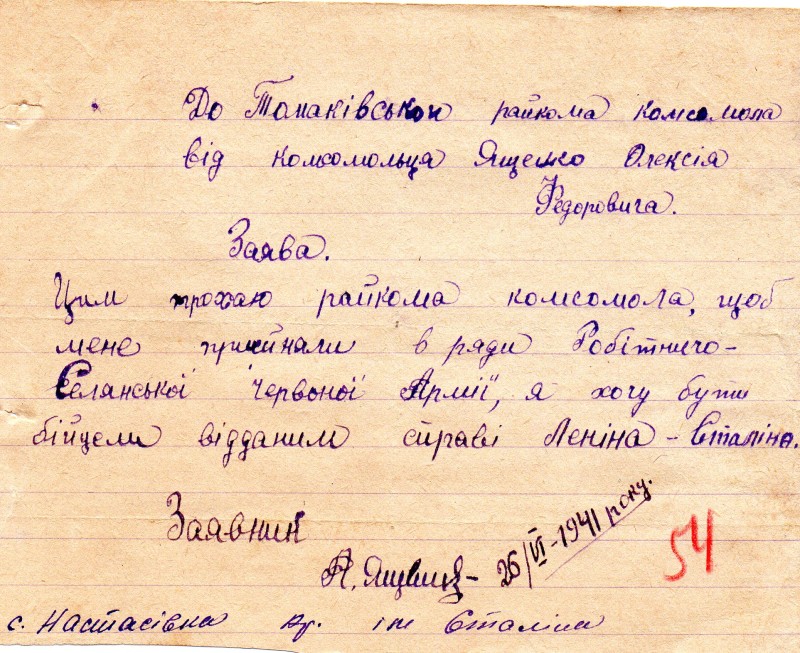 До Томаківськой райкома комсомола
від комсомольця Ященко Олексія
Федоровича.
Заява.
Цим прохаю райкома комсомола, щоб
мене прийняли в ряди Робітничо-
Селянської Червоної Армії, я хочу бути
бійцем відданим справі Леніна - Сталіна.
Заявник
А. Ященко - 26/VI-1941 року.
54
с. Настасівка ар. ім Сталіна